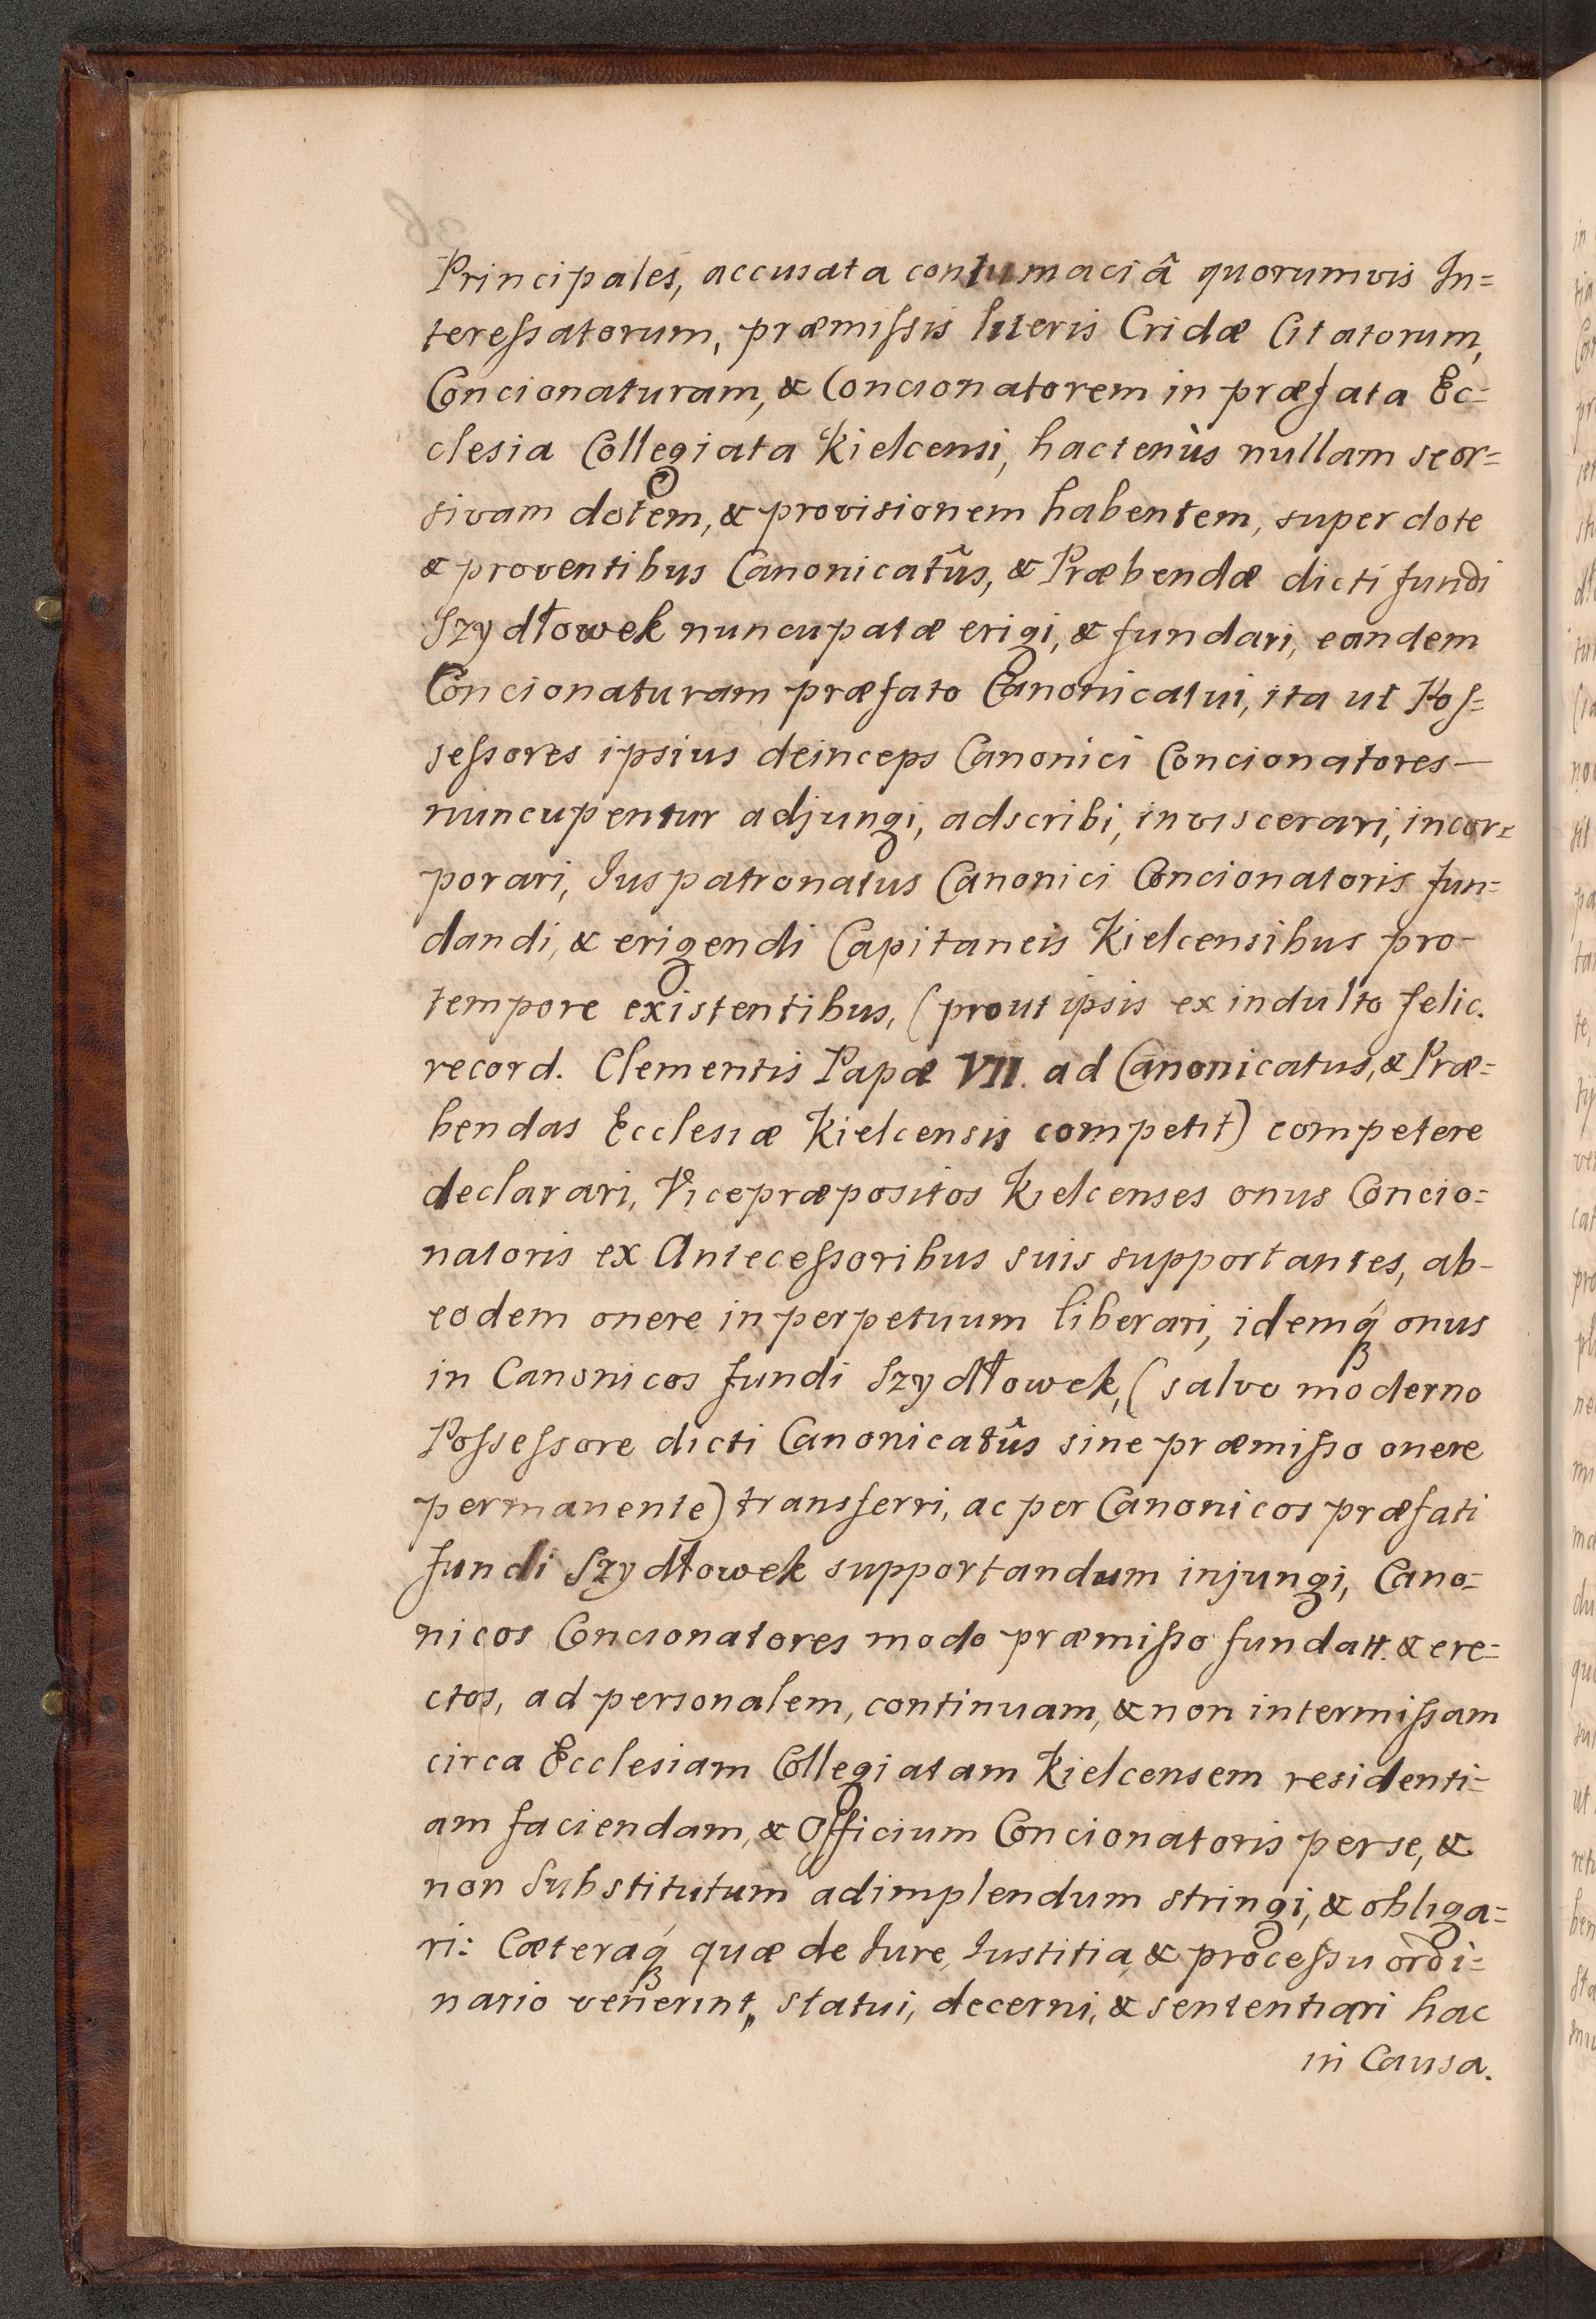 Principales, accusata contumaciâ quorumvis In=
teressatorum, præmissis literis Cridæ Citatorum,
Concionaturam, & Concionatorem in præfata Ec=
clesia Collegiata Kielcensi, hactenùs nullam seor=
sivam dotem, & provisionem habentem, super dote
& proventibus Canonicatûs, & Præbendæ dicti fundi
Szydłowek nuncupatæ erigi, & fundari, eandem
Concionaturam præfato Canonicatui, ita ut Pos=
sessores ipsius deinceps Canonici Concionatores—
nuncupentur adjungi, adscribi, inviscerari, incor=
porari, Juspatronatus Canonici Concionatoris fun=
dandi, & erigendi Capitaneis Kielcensibus pro-
tempore existentibus, (prout ipsis ex indulto felic.
record. Clementis Papæ VII. ad Canonicatus, & Præ=
bendas Ecclesiæ Kielcensis competit) competere
declarari, Vicepræpositos Kielcenses onus Concio=
natoris ex Antecessoribus suis supportantes, ab-
eodem onere in perpetuum liberari, idemq́ onus
in Canonicos fundi Szydłowek, (salvo moderno
Possessore dicti Canonicatûs sine præmisso onere
permanente) transferri, ac per Canonicos præfati
fundi Szydłowek supportandum injungi, Cano=
nicos Concionatores modo præmisso fundatt. & ere=
ctos, ad personalem, continuam, & non intermissam
circa Ecclesiam Collegiatam Kielcensem residenti=
am faciendam, & Officium Concionatoris per se, &
non Substitutum adimplendum stringi, & obliga=
ri: Cæteraq́ quæ de Jure, Justitia, & processu ordi=
nario venerint, statui, decerni, & sententiari hac
in Causa.